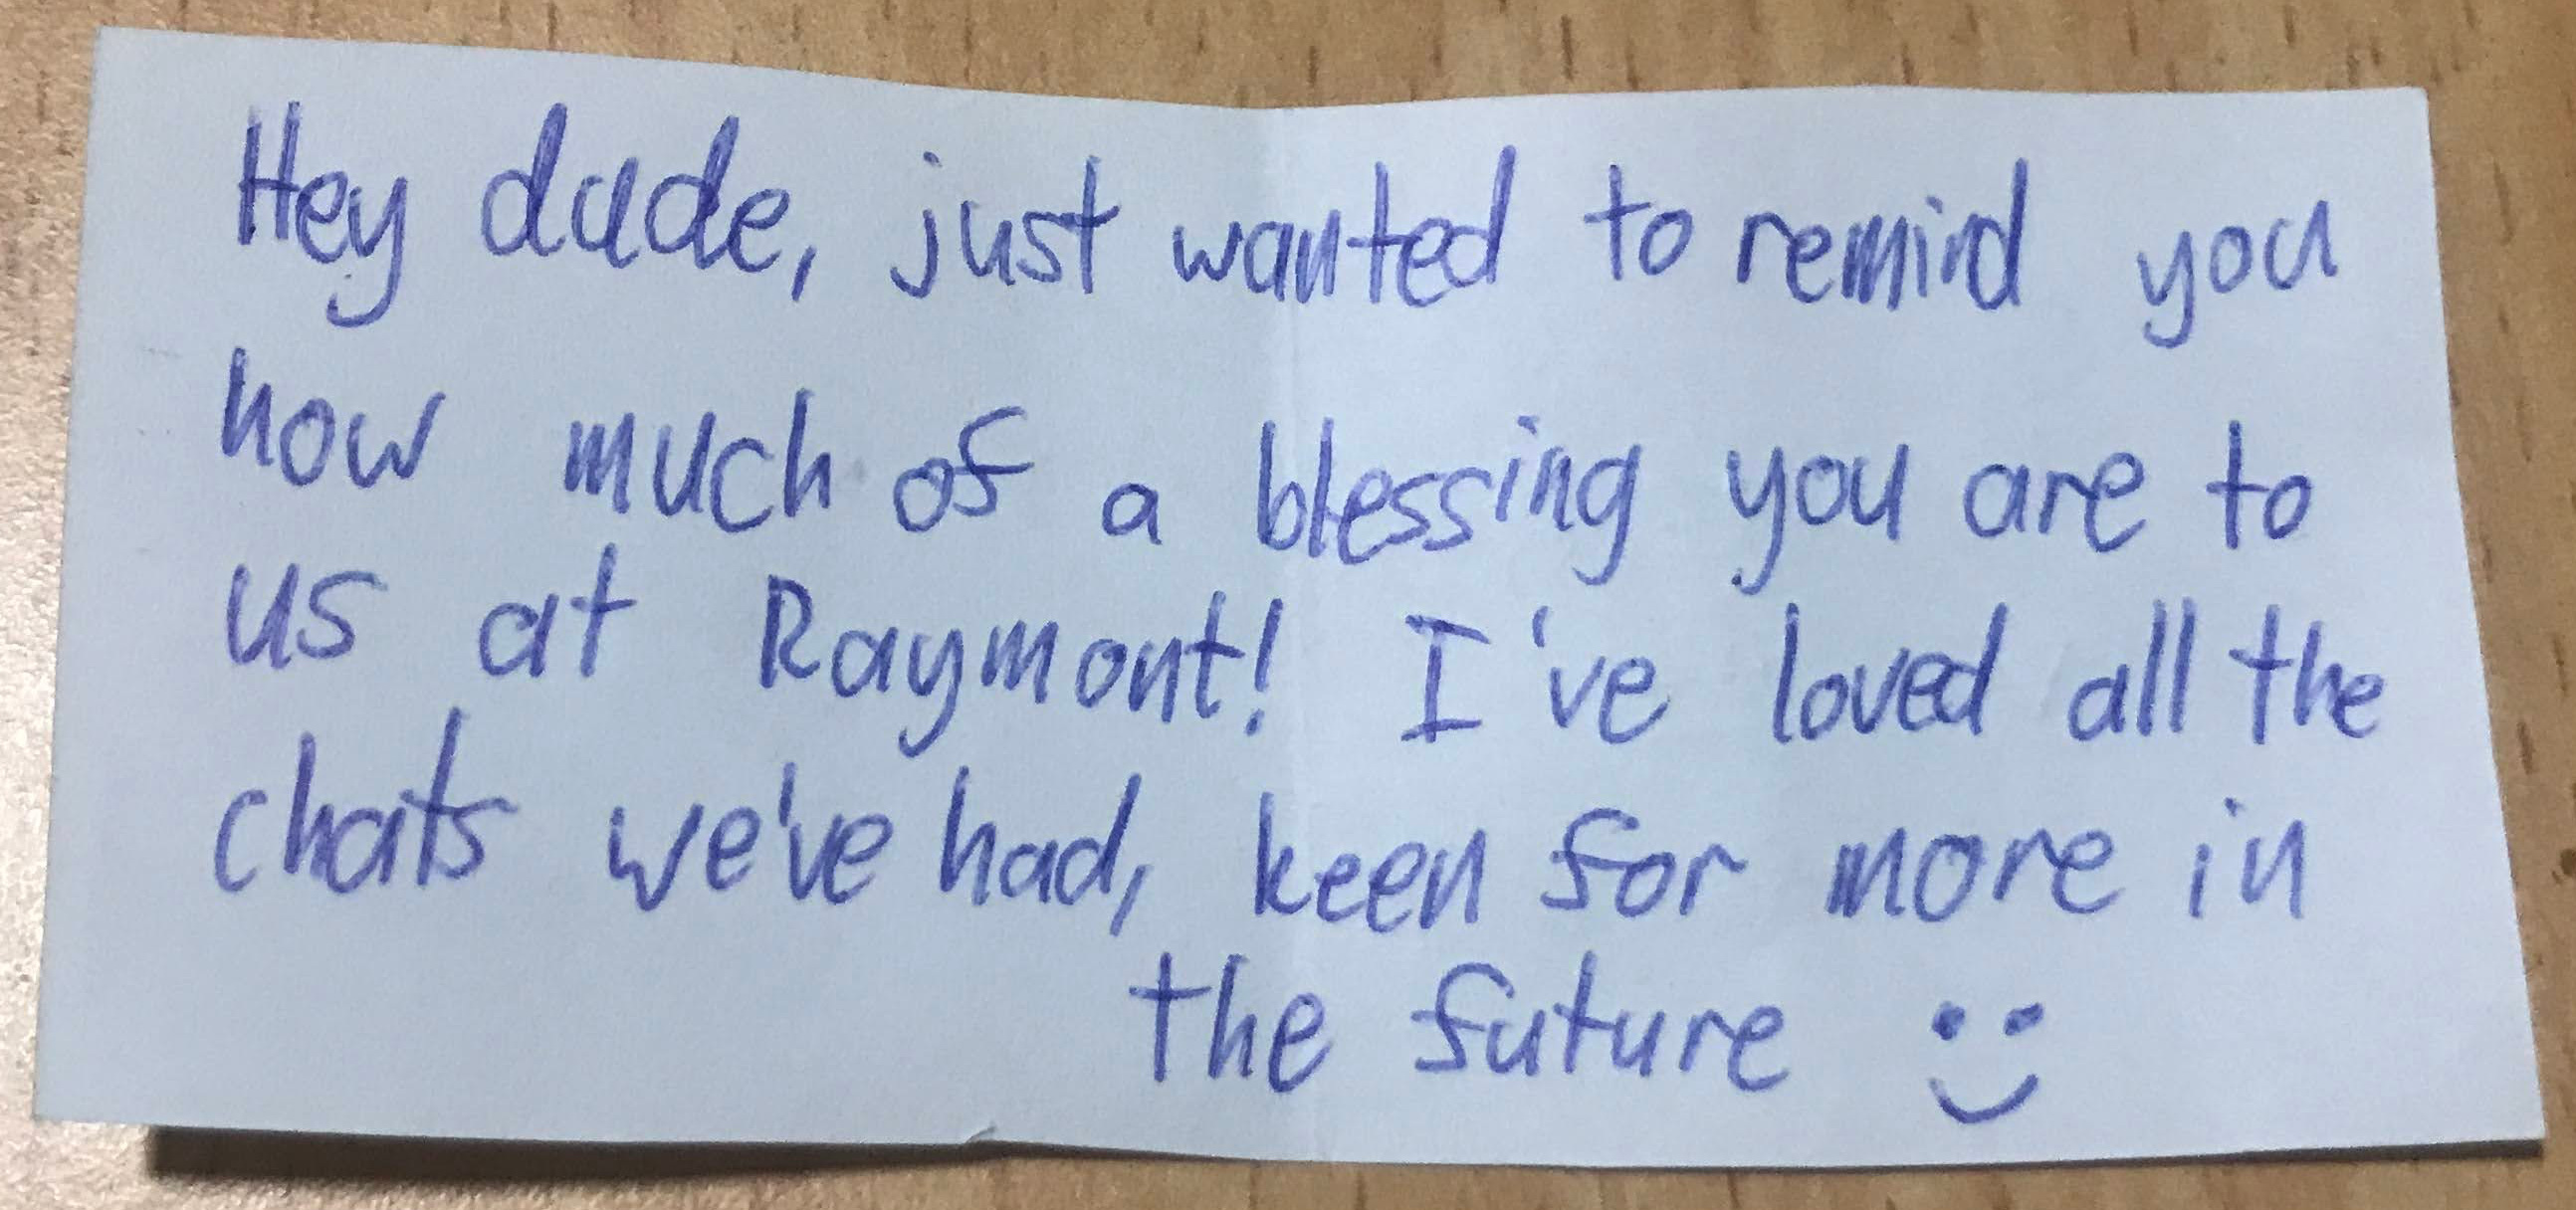 Hey dude, just wanted to remind you
how much of a blessing you are to
us at Raymont! I've loved all the
chats we've had, keen for more in
the future :)